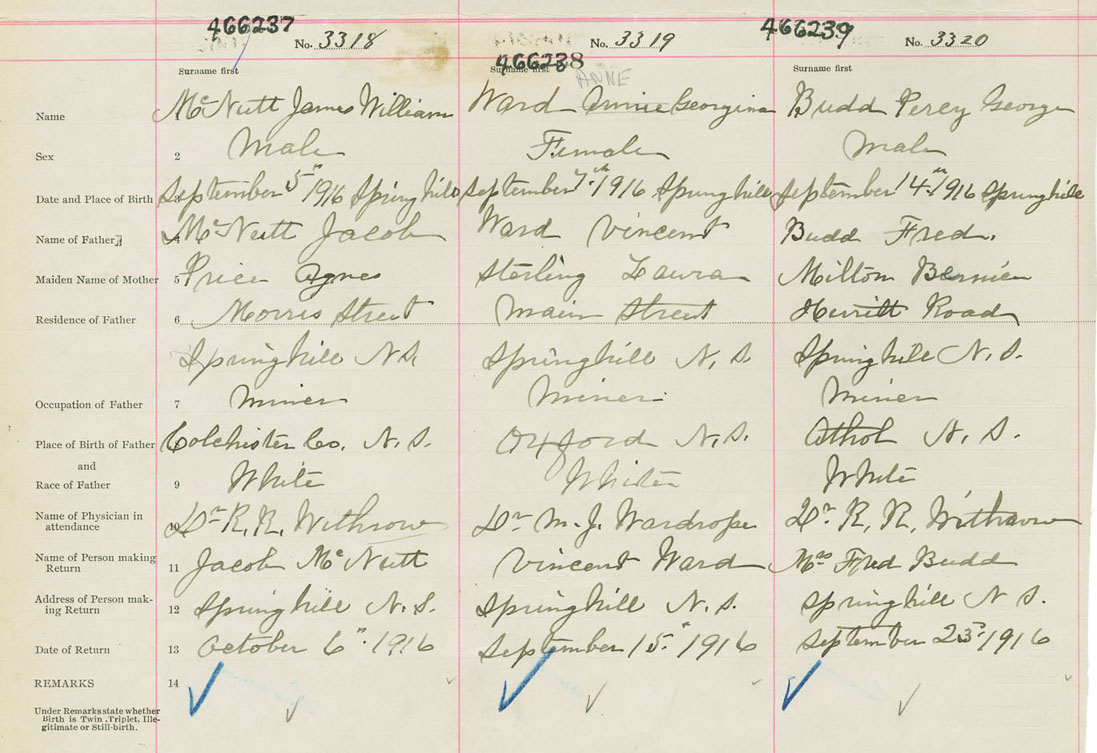 466237 466239
No. 3318 No. 3319 No. 3320
466238
Surname first Surname first Surname first
ANNE
Name McNutt James William Ward Annie Georgina Budd Percy George
Sex 2 Male Female Male
Date and Place of Birth September 5th 1916 Springhill September 7th 1916 Springhill September 14th 1916 Springhill
Name of Father 4 McNutt Jacob Ward Vincent Budd Fred.
Maiden Name of Mother 5 Price Agnes Sterling Laura Milton Bernice
Residence of Father 6 Morris Street Main Street Herritt Road
Springhill N.S. Springhill N.S. Springhill N.S.
Occupation of Father 7 Miner Miner Miner
Place of Birth of Father Colchester Co. N.S. Oxford N.S. Athol N.S.
and
Race of Father 9 White White White
Name of Physician in attendance 10 Dr R. R. Withrow Dr M. J. Wardrope Dr. R. R. Withrow
Name of Person making Return 11 Jacob McNutt Vincent Ward Mrs Fred Budd
Address of Person making Return 12 Springhill N.S. Springhill N.S. Springhill N S.
Date of Return 13 October 6th 1916 September 15th 1916 September 23rd 1916
REMARKS 14
Under Remarks state whether
Birth is Twin, Triplet, Ille-
gitimate or Still-birth.